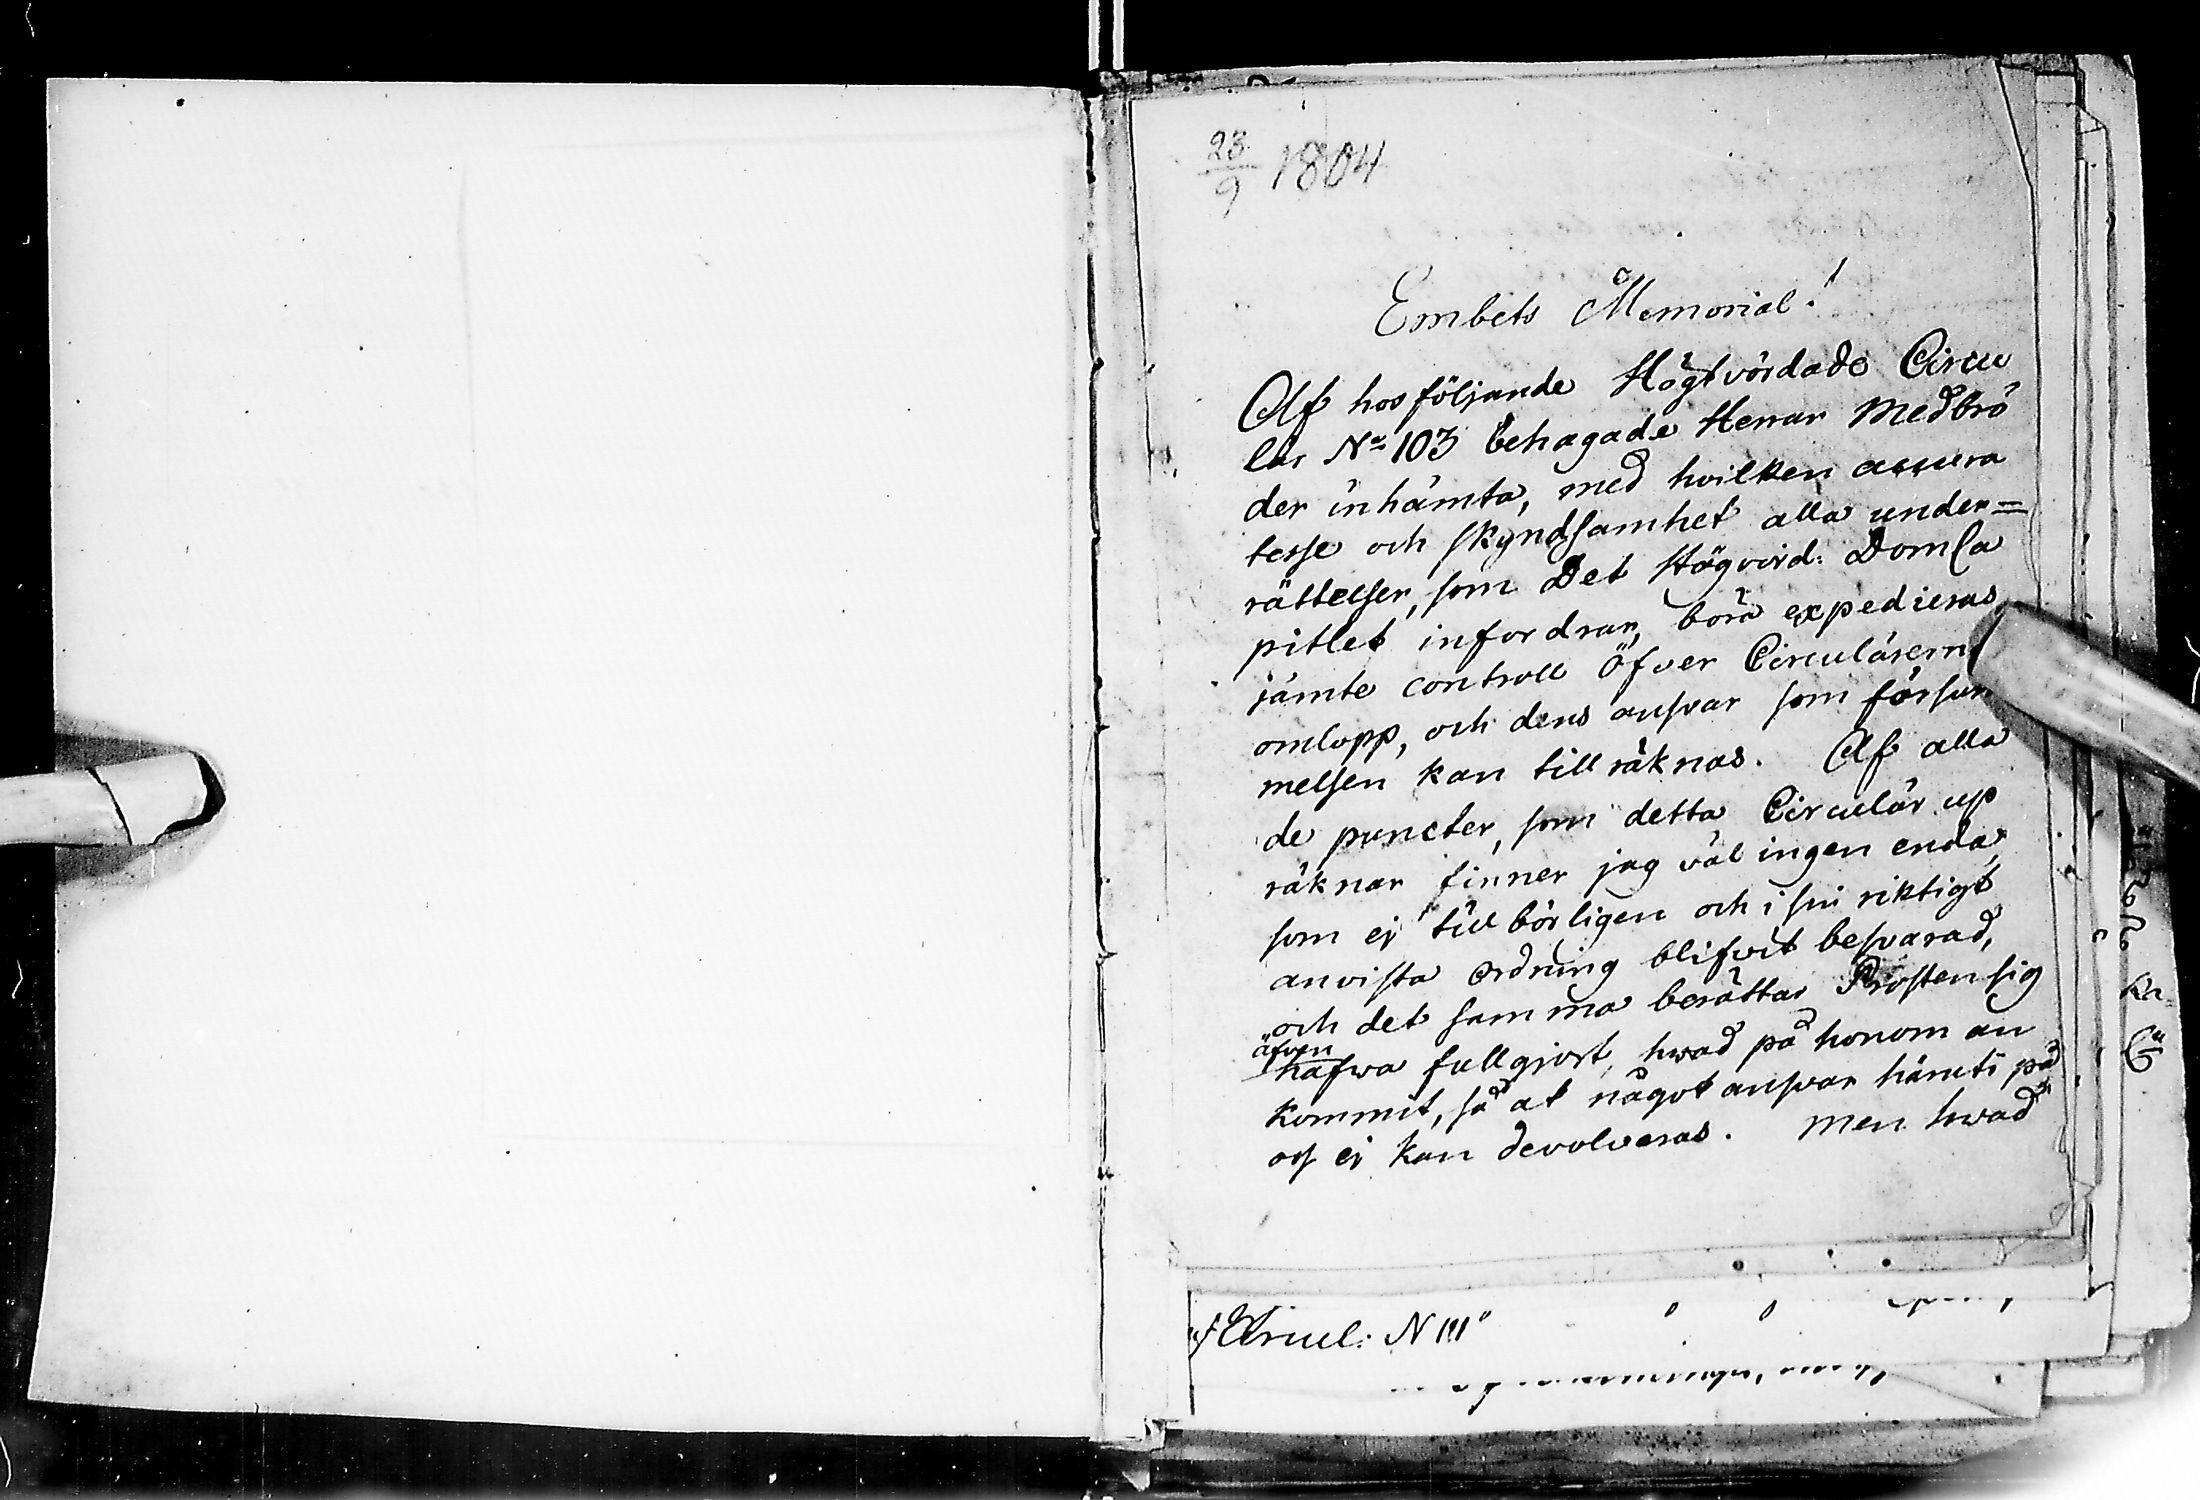 23/9 1804
Embets Memorial!
Af hosföljande Högtvördade Circu
lär No 103 behagade Herrar Medbrö
der inhämta, med hvilken accura
tesse och skyndsamhet alla under=
rättelser, som Det Högvörd: DomCa
pitlet infordrar, böra expedieras
jämte controll öfver Circulärerne
omlopp, och dens ansvar som försum
melsen kan tillräknas. Af alla
de puncter, som detta Circulär up
räknar finner jag väl ingen enda,
som ej tillbörligen och i sin riktigt
anvista ordning blifvit besvarad,
och det samma berättar Prosten sig
äfven
hafwa fullgjort, hwad på honom an
kommit, så at något ansvar häruti på
oss ej kan devolveras. Men hwad
Circul: N 111